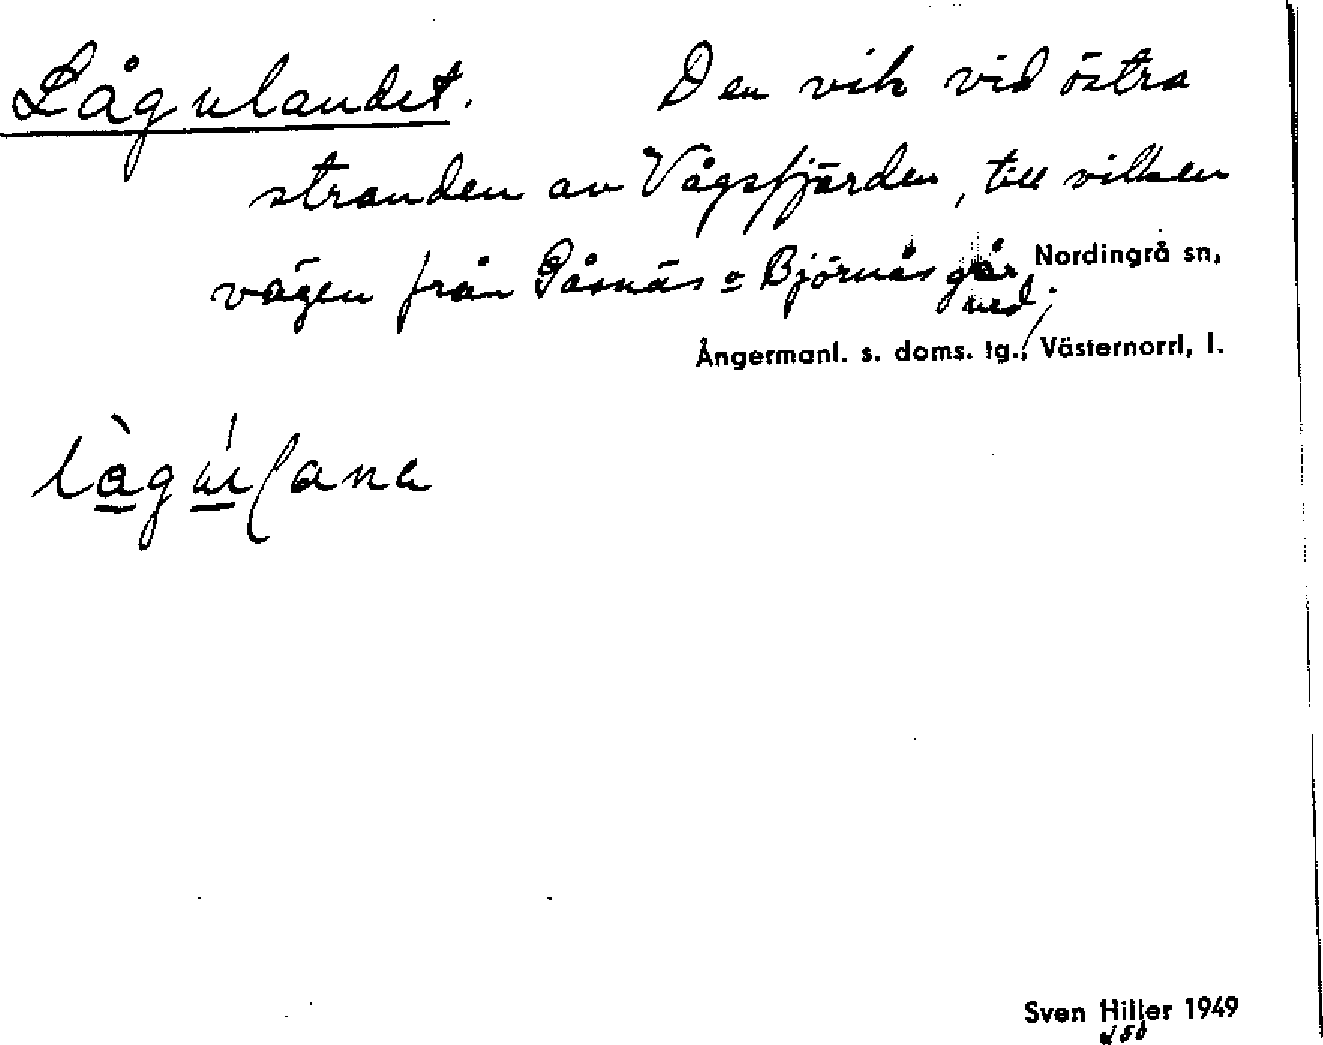 Lågulandet. Den vik vid östra
stranden av Vågsfjärden, till vilken
vägen från Påsnäs o Björnås går
ned; Nordingrå sn,
Ångermanl. s. doms. tg., Västernorrl, l.
Sven Hiller 1949